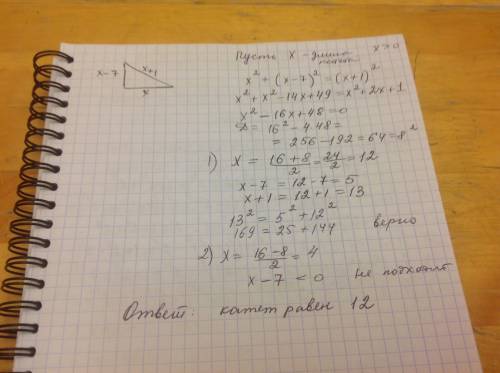 x-7
x+1
x
Пусть x - длина катета x>0
x² + (x-7)² = (x+1)²
x² + x² - 14x + 49 = x² + 2x + 1
x² - 16x + 48 = 0
D = 16² - 4·48 =
= 256 - 192 = 64 = 8²
1) x = (16+8)/2 = 24/2 = 12
x-7 = 12-7 = 5
x+1 = 12+1 = 13
13² = 5² + 12²
169 = 25 + 144 верно
2) x = (16-8)/2 = 4
x-7 < 0 не подходит
Ответ: катет равен 12